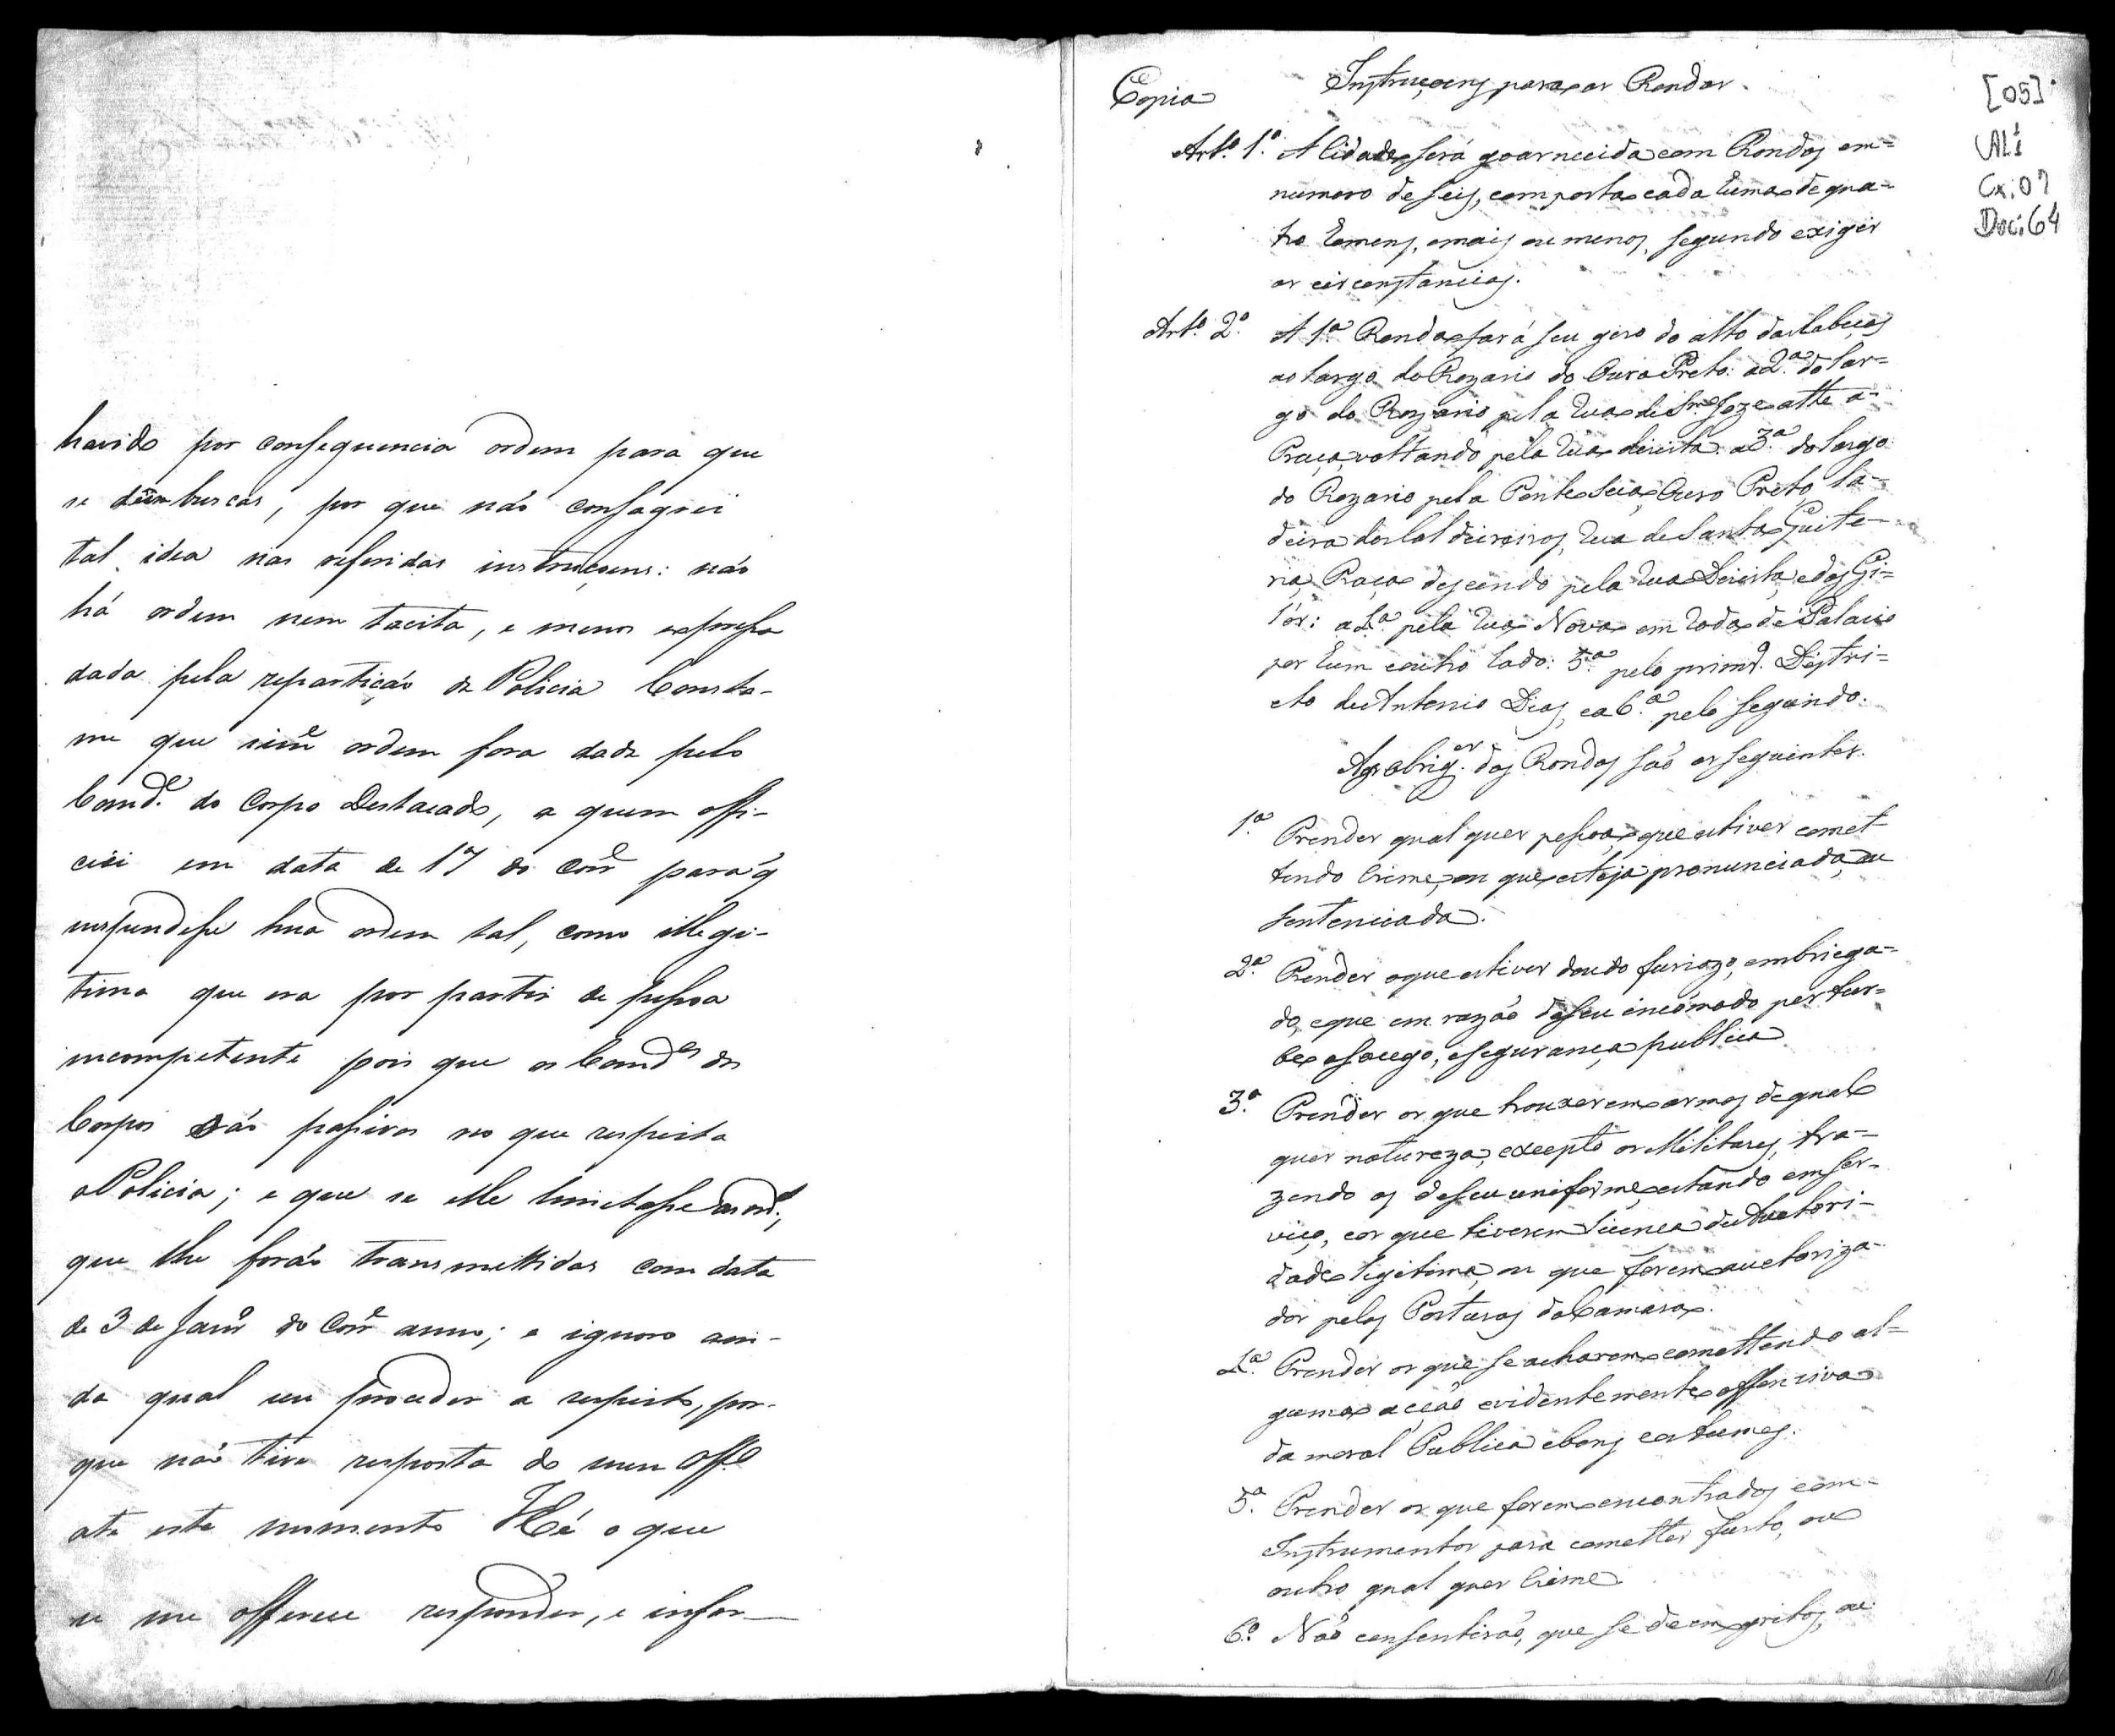 havido por consequencia ordem para que
se dêm buscas, por que não consagrei
tal idea nas referidas instrucçoens: não
há ordem nem tacita, e menos expressa
dada pela repartição da Policia Consta-
me que ordem fora dada pelo
Comd.e do Corpo Destacado, a quem offi-
ciei em data de 17 do Corr.e para q
suspendesse hua ordem tal, como illegi-
tima que era por partir de pessoa
incompetente pois que os Comd.es dos
Corpos são passivos no que respeita
a Policia; e que se elle limitasse as ord.s
que lhe forão transmettidas com data
de 3 de Janr.o do Corr.e anno; e ignoro ain-
da qual seu proceder a respeito, por-
que não tive resposta do meu Off.o
até este momento Hé o que
se me offerece responder, e infor-
Copia
Instruçoens para as Rondas.
[05]
AL1
Cx: 07
Doc: 64
Art.o 1.o A Cidade será goarnecida com Rondas em=
numero de seis, composta cada huma de qua=
tro homens, e mais ou menos, segundo exigir
as circonstancias.
Art.o 2.o A 1.a Ronda fará seu giro do alto das Cabeças
ao largo do Rozario do Ouro Preto: a 2.a do lar=
go do Rozario pela rua de S. Joze athe a=
Praça, voltando pela rua direita: a 3.a do largo
do Rozario pela Ponte Seca, Ouro Preto, la=
deira dos Caldeireiros, rua de Santa Quite=
ria, Praça descendo pela rua Direita, e dos Gi=
lós: a 4.a pela rua Nova em roda de Palacio
por hum e outro lado: 5.a pelo prim.o Distri=
cto de Antonio Dias, e a 6.a pelo segundo.
As obrig.es das Rondas são as seguintes.
1.a Prender qual quer pessoa, que estiver comet-
tendo Crime, ou que esteja pronunciada, ou
sentenciada.
2.a Prender o que estiver doudo furiozo, embriega=
do, e que em razão do seu incómodo pertur=
be o socego, e segurança publica
3.a Prender os que trouxerem armas de qual
quer natureza, excepto os Militares, tra=
zendo as do seu uniforme, estando em ser=
viço, e os que tiverem licença de Autori-
dade legitima, ou que forem auctoriza-
dos pelas Posturas da Camara.
4.a Prender os que se acharem comettendo al=
guma acção evidentemente offenciva
da moral Publica e bons costumes.
5.a Prender os que forem encontrados com=
Instrumentos para cometter furto, ou
outro qual quer Crime
6.a Não consentirão, que se deem gritos, ou